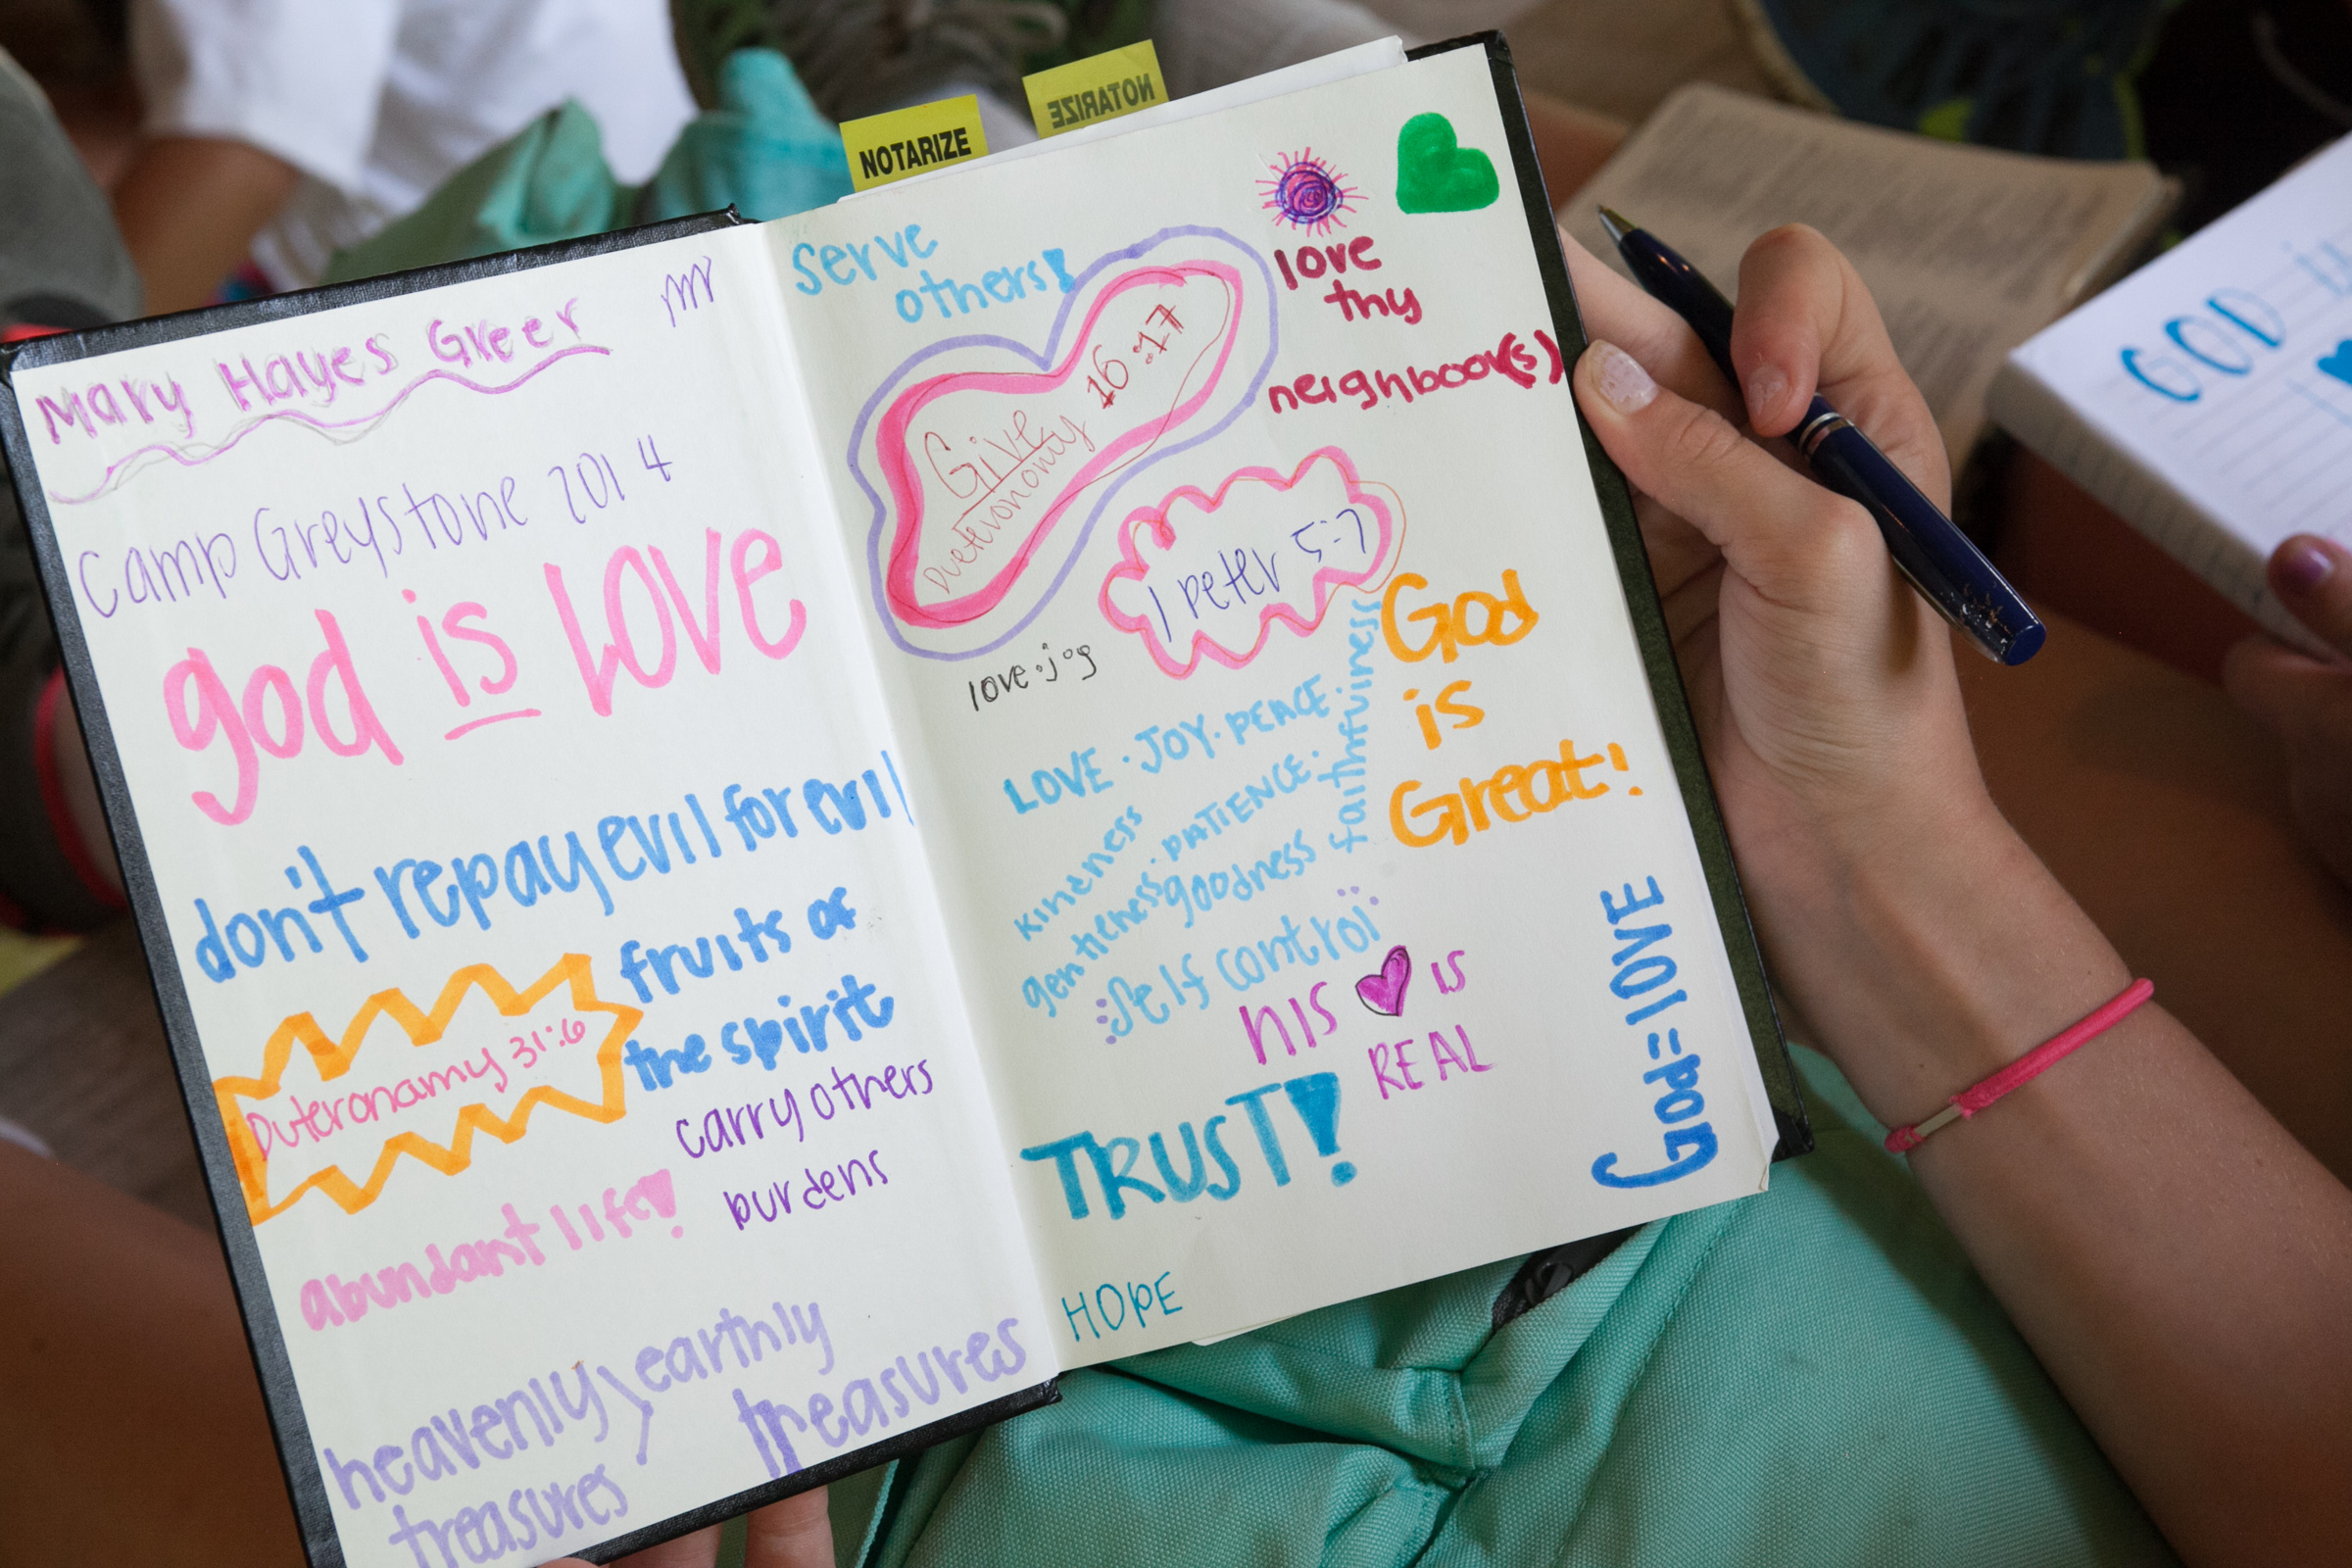 NOTARIZE
NOTARIZE
Mary Hayes Greer
Camp Greystone 2014
god is LOVE
don't repay evil for evil
fruits of
the spirit
Duteronamy 31:6
carry others
burdens
abundant life!
heavenly > earthly
treasures
treasures
serve
others!
love
thy
neighboor(s)
Give
Duetevonomy 16:17
1 peter 5:7
love·joy
God
is
Great!
LOVE · JOY · PEACE ·
faithfulness
PATIENCE ·
kindness
gentleness · goodness
self control
HIS ♥ IS
REAL
God=lOVE
TRUST!
HOPE
GOD